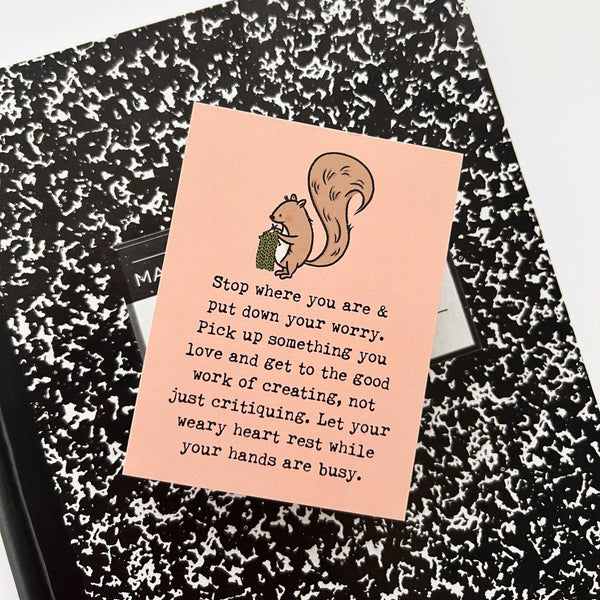 MA
Stop where you are &
put down your worry.
Pick up something you
love and get to the good
work of creating, not
just critiquing. Let your
weary heart rest while
your hands are busy.